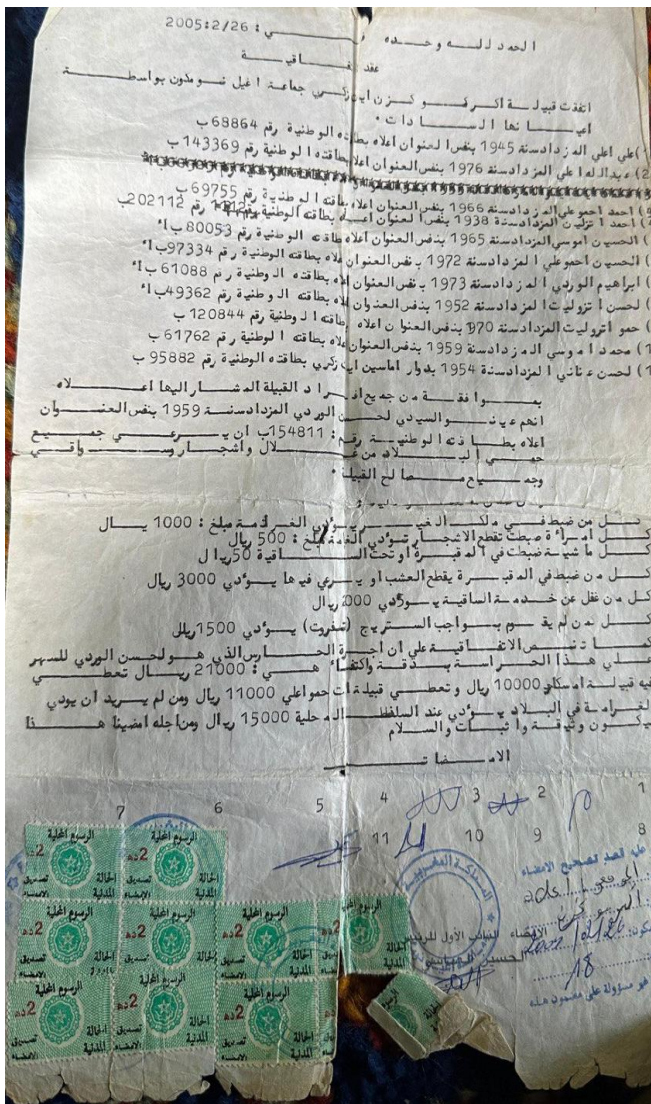 الحمد لله وحده في : 2005:2/26
عقد اتفاقية
اتفقت قبيلة اكرفـو كـزن ايت زكري جماعة اغيل نـومكون بواسطة
اعيانها السادات •
علي اعلي المزداد سنة 1945 بنفس العنوان اعلاه بطاقته الوطنية رقم 68864 ب
2) عبدالله اعلي المزداد سنة 1976 بنفس العنوان اعلاه بطاقته الوطنية رقم 143369 ب
احمد احمو علي المزداد سنة 1966 بنفس العنوان اعلاه بطاقته الوطنية رقم 69755 ب
احمد ا تزليت المزداد سنة 1938 بنفس العنوان اعلاه بطاقته الوطنية رقم 202112 ب
الحسين اموسي المزداد سنة 1965 بنفس العنوان اعلاه بطاقته الوطنية رقم 80053 ب أ
الحسين احمو علي المزداد سنة 1972 بنفس العنوان اعلاه بطاقته الوطنية رقم 97334 ب أ
ابراهيم الوردي المزداد سنة 1973 بنفس العنوان اعلاه بطاقته الوطنية رقم 61088 ب أ
لحسن ا تزوليت المزداد سنة 1952 بنفس العنوان اعلاه بطاقته الوطنية رقم 49362 ب أ
) حمو اتزوليت المزداد سنة 970 بنفس العنوان اعلاه بطاقته الوطنية رقم 120844 ب
1) محمد اموسي المزداد سنة 1959 بنفس العنوان اعلاه بطاقته الوطنية رقم 61762 ب
1) لحسن عناني المزداد سنة 1954 بدوار اماسين ايت زكري بطاقته الوطنية رقم 95882 ب
بموافقة من جميع افراد القبيلة المشار اليها اعلاه
انهم عينو السيدي لحسن الوردي المزداد سنة 1959 بنفس العنوان
اعلاه بطاقته الوطنية رقم : 154811ب ان يرعي جميع
حمي البلاد من غلال وأشجار وسواقي
وجميع مصالح القبيلة •
كل من ضبط في ملك الغير يؤدي الغرامة مبلغ : 1000 ريال
كل امرأة ضبطت تقطع الاشجار تؤدي الغرامة مبلغ : 500 ريال
كل ماشية ضبطت في المقبرة او تحت الساقية 50 ريال
كل من ضبط في المقبرة يقطع العشب او يرعي فيها يؤدي 3000 ريال
كل من غفل عن خدمة الساقية يؤدي 000 ريال
كل من لم يقوم بواجب الستريج (تفروت) يؤدي 1500 ريال
كما تنص الاتفاقية علي ان اجرة الحارس الذي هو لحسن الوردي للسهر
علي هذا الحراسة بدقة واكتفاء هي : 21000 ريال تعطي
فيه قبيلة امسكار 10000 ريال وتعطي قبيلة ات حمو اعلي 11000 ريال ومن لم يريد ان يودي
الغرامة في البلاد يؤدي عند السلطة المحلية 15000 ريال ومن اجله امضينا هذا
ليكون وثيقة واثبات والسلام
الامضاءات
1 2 3 4 5 6 7
8 9 10 11
المملكة المغربية
الإمضاء
النائب الأول للرئيس
18
غير مسؤولة على مضمون هذه
الرسوم المحلية
2 ده
الحالة المدنية
تصديق الامضاء
الرسوم المحلية
2 ده
الحالة المدنية
تصديق الامضاء
الرسوم المحلية
2 ده
الحالة المدنية
تصديق الامضاء
الرسوم المحلية
2 ده
الحالة المدنية
تصديق الامضاء
الرسوم المحلية
2 ده
الحالة المدنية
تصديق الامضاء
الرسوم المحلية
2 ده
الحالة المدنية
تصديق الامضاء
الرسوم المحلية
2 ده
الحالة المدنية
تصديق الامضاء
الرسوم المحلية
2 ده
الحالة المدنية
تصديق الامضاء